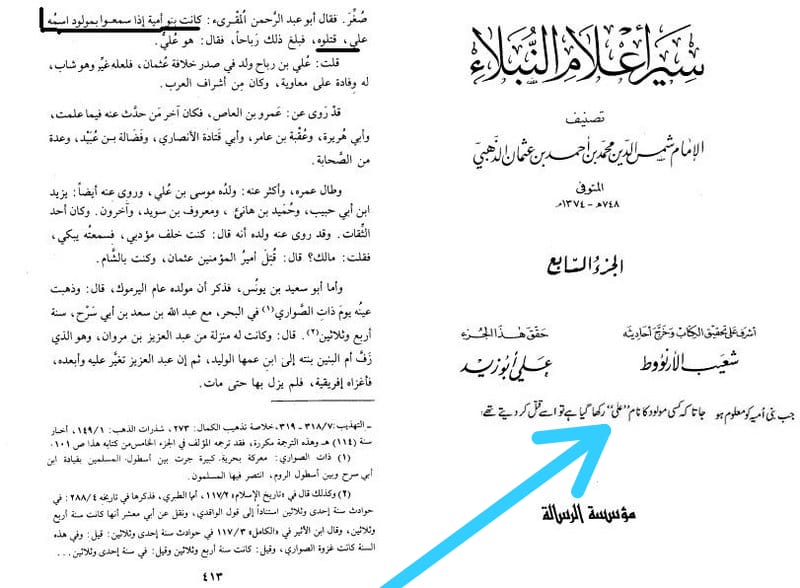 سير أعلام النبلاء
تصنيف
الإمام شمس الدين محمد بن أحمد بن عثمان الذهبي
المتوفى
٧٤٨هـ - ١٣٧٤م
الجزء السابع
أشرف على تحقيق الكتاب وخرّج أحاديثه
شعيب الأرنؤوط
حقق هذا الجزء
علي أبو زيد
جب بنی امیہ کو معلوم ہو جاتا کہ کسی مولود کا نام "علی" رکھا گیا ہے تو اسے قتل کر دیتے تھے۔
مؤسسة الرسالة
صُغِّرَ. فقال أبو عبد الرَّحمن المقرىء: كانت بنو أمية إذا سمعوا بمولود اسمُه
علي، قتلوه، فبلغ ذلك رَباحاً، فقال: هو عُلَيٌّ.
قلت: عُلي بن رباح ولد في صدر خلافة عُثمان، فلعله غيِّر وهو شاب،
له وِفادة على معاوية، وكان مِن أشراف العرب.
قدْ رَوى عن: عَمرو بن العاص، فكان آخر مَن حدَّث عنه فيما علمت،
وأبي هُريرة، وعُقْبة بن عامر، وأبي قَتادة الأنصاري، وفَضَالة بن عُبَيْد، وعدة
من الصَّحابة.
وطال عمره، وأكثر عنه: ولدُه موسى بن عُلَي، وروى عنه أيضاً: يزيد
ابن أبي حبيب، وحُمَيد بن هانئ، ومعروف بن سويد، وآخرون. وكان أحد
الثِّقات. وقد روى عنه ولده أنه قال: كنت خلف مؤدبي، فسمعتُه يبكي،
فقلت: مالك؟ قال: قُتِلَ أميرُ المؤمنين عثمان، وكنت بالشَّام.
وأما أبو سعيد بن يونُس، فذكر أن مولده عام اليرموك، قال: وذهبت
عينُه يومَ ذاتِ الصَّواري(١) في البحر، مع عبد الله بن سعد بن أبي سَرْح، سنة
أربع وثلاثين(٢). قال: وكانت له منزلة من عبد العزيز بن مروان، وهو الذي
زَفَّ أم البنين بنته إلى ابنِ عمها الوليد، ثم إن عبد العزيز تغيَّر عليه وأبعده،
فأغزاه إفريقية، فلم يزل بها حتى مات.
= التهذيب: ٣١٨/٧ - ٣١٩، خلاصة تذهيب الكمال: ٢٧٣، شذرات الذهب: ١٤٩/١، أخبار
سنة (١١٤) هـ وهذه الترجمة مكررة، فقد ترجمه المؤلف في الجزء الخامس من كتابه هذا ص ١٠١.
(١) ذات الصواري: معركة بحرية كبيرة جرت بين أسطول المسلمين بقيادة ابن
أبي سرح وبين أسطول الروم، انتصر فيها المسلمون.
(٢) وكذلك قال في «تاريخ الإسلام» ١١٧/٢، أما الطبري، فذكرها في تاريخه ٢٨٨/٤: في
حوادث سنة إحدى وثلاثين استناداً إلى قول الواقدي، ونقل عن أبي معشر أنها كانت سنة أربع
وثلاثين، وقال ابن الأثير في «الكامل» ١١٧/٣ في حوادث سنة إحدى وثلاثين: قيل: وفي هذه
السنة كانت غزوة الصواري، وقيل: كانت سنة أربع وثلاثين وقيل: في سنة إحدى وثلاثين ...
٤١٣